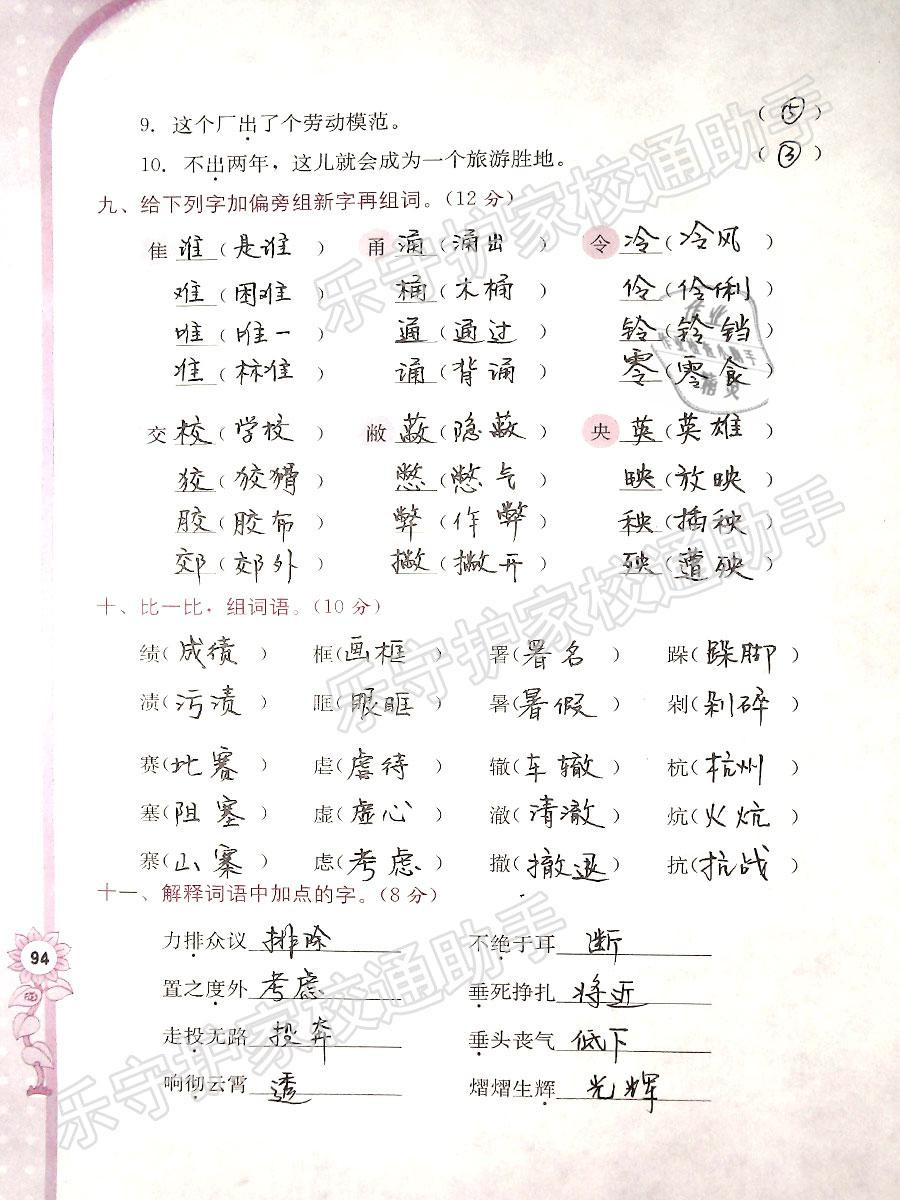 9. 这个厂出了个劳动模范。 (⑤)
10. 不出两年，这儿就会成为一个旅游胜地。 (③)
九、给下列字加偏旁组新字再组词。(12 分)
隹 谁(是谁) 甬 涌(涌出) 令 冷(冷风)
难(困难) 桶(木桶) 伶(伶俐)
唯(唯一) 通(通过) 铃(铃铛)
准(标准) 诵(背诵) 零(零食)
交 校(学校) 敝 蔽(隐蔽) 央 英(英雄)
狡(狡猾) 憋(憋气) 映(放映)
胶(胶布) 弊(作弊) 秧(插秧)
郊(郊外) 撇(撇开) 殃(遭殃)
十、比一比，组词语。(10 分)
绩(成绩) 框(画框) 署(署名) 跺(跺脚)
渍(污渍) 眶(眼眶) 暑(暑假) 剁(剁碎)
赛(比赛) 虐(虐待) 辙(车辙) 杭(杭州)
塞(阻塞) 虚(虚心) 澈(清澈) 炕(火炕)
寨(山寨) 虑(考虑) 撤(撤退) 抗(抗战)
十一、解释词语中加点的字。(8 分)
力排众议 排除 不绝于耳 断
置之度外 考虑 垂死挣扎 将近
走投无路 投奔 垂头丧气 低下
响彻云霄 透 熠熠生辉 光辉
94
乐守护家校通助手
乐守护家校通助手
乐守护家校通助手